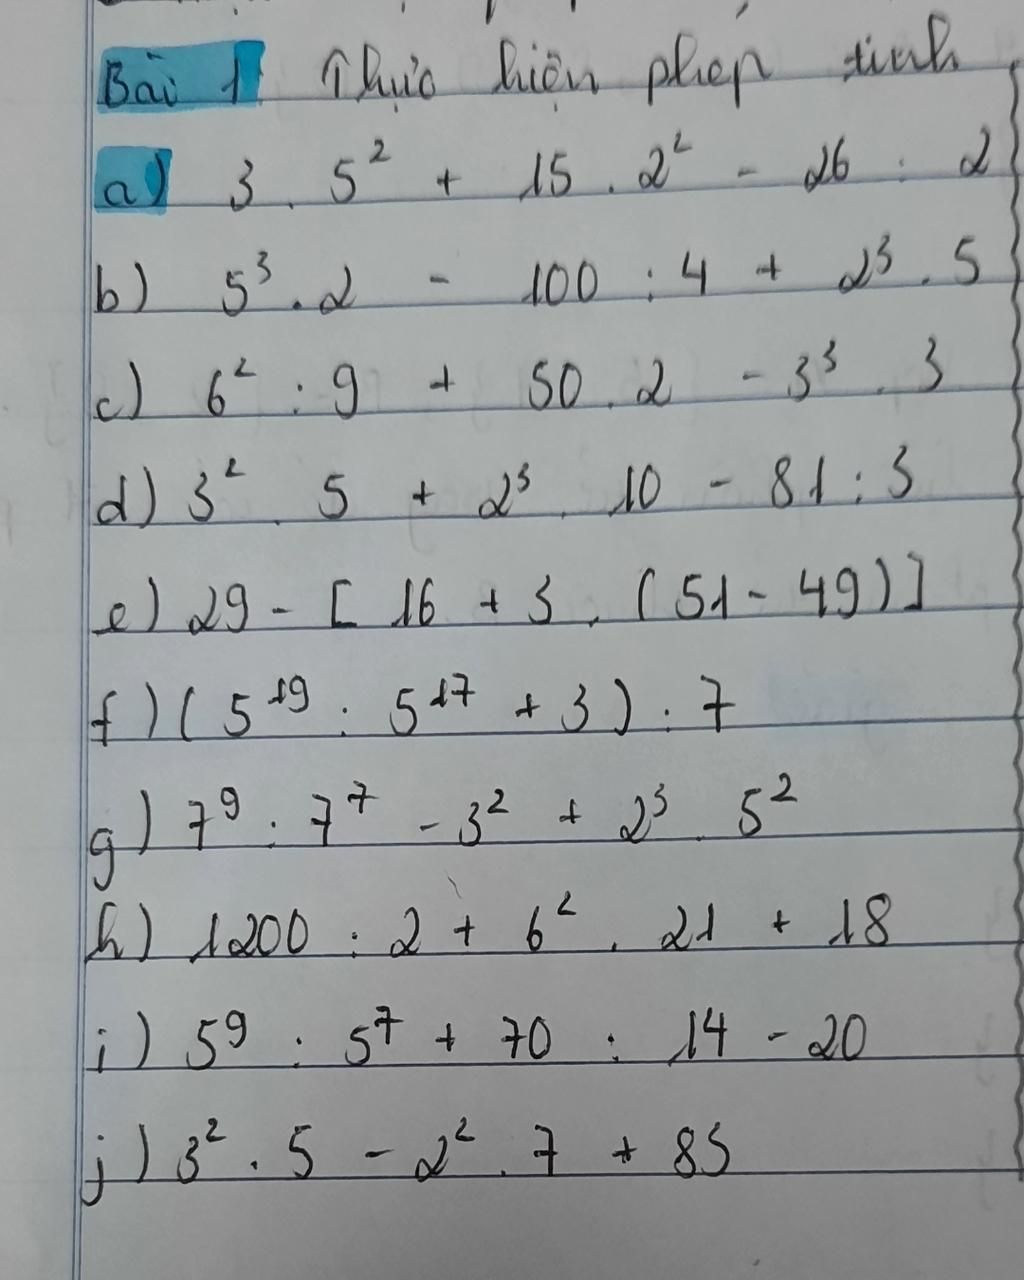 Bài 1 Thực hiện phép tính
a) 3 . 5² + 15 . 2² - 26 : 2
b) 5³ . 2 - 100 : 4 + 2³ . 5
c) 6² : 9 + 50 . 2 - 3³ . 3
d) 3² . 5 + 2³ . 10 - 81 : 3
e) 29 - [ 16 + 3 . (51 - 49)]
f) (5¹⁹ : 5¹⁷ + 3) : 7
g) 7⁹ : 7⁷ - 3² + 2³ . 5²
h) 1200 : 2 + 6² . 21 + 18
i) 5⁹ : 5⁷ + 70 : 14 - 20
j) 3² . 5 - 2² . 7 + 85